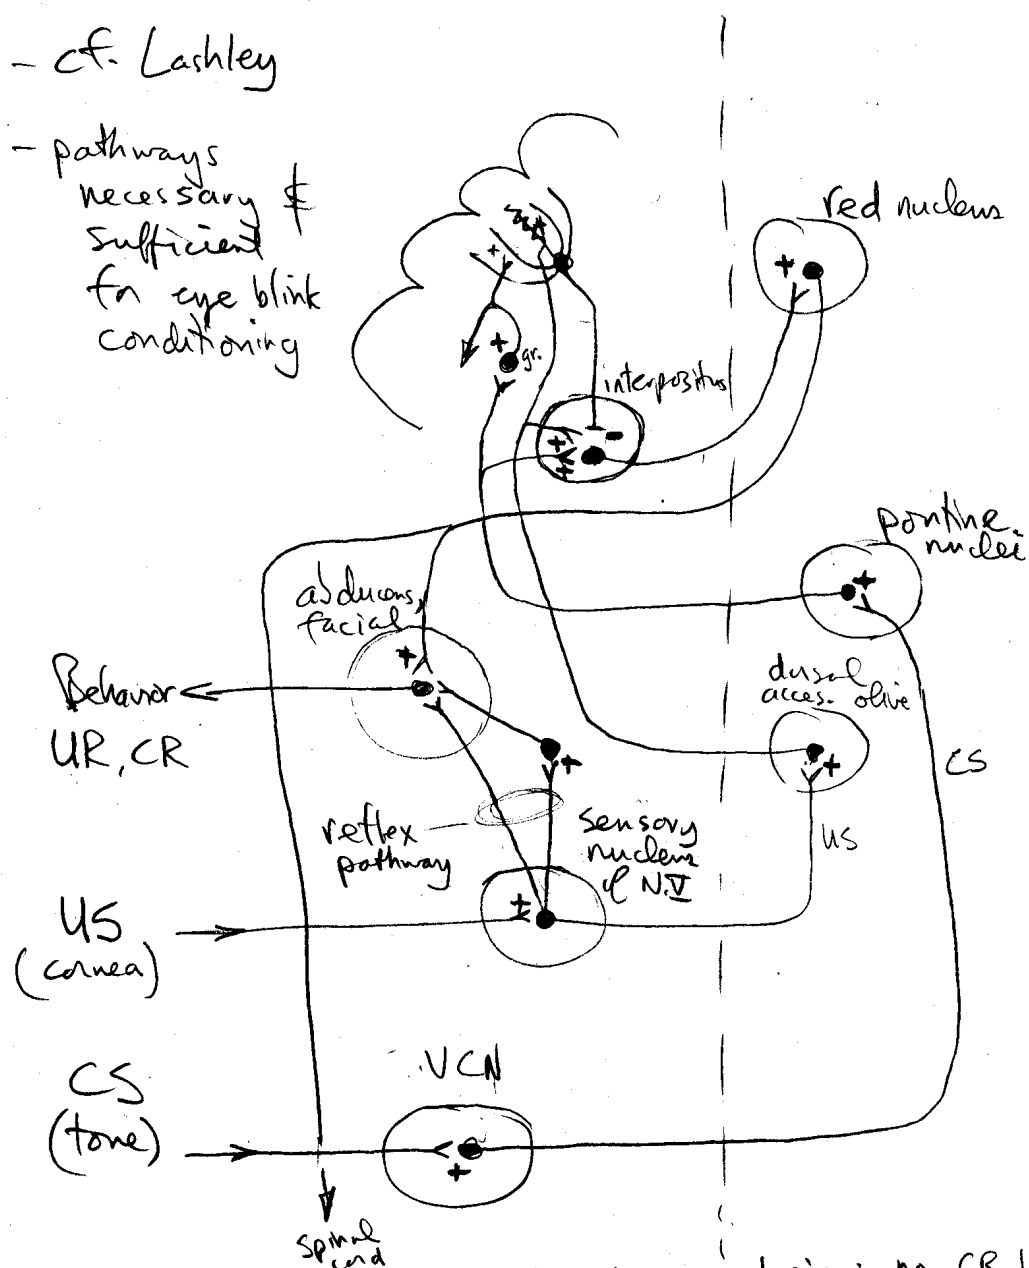 - cf. Lashley
- pathways
necessary &
sufficient
for eye blink
conditioning
red nucleus
+
+
+
gr.
interpositus
+
-
+
pontine
nuclei
+
abducens,
facial
+
Behavior
UR, CR
dorsal
acces. olive
+
+
CS
US
reflex
pathway
sensory
nucleus
of N.V
+
US
(cornea)
VCN
CS
(tone)
+
spinal
cord
no CR